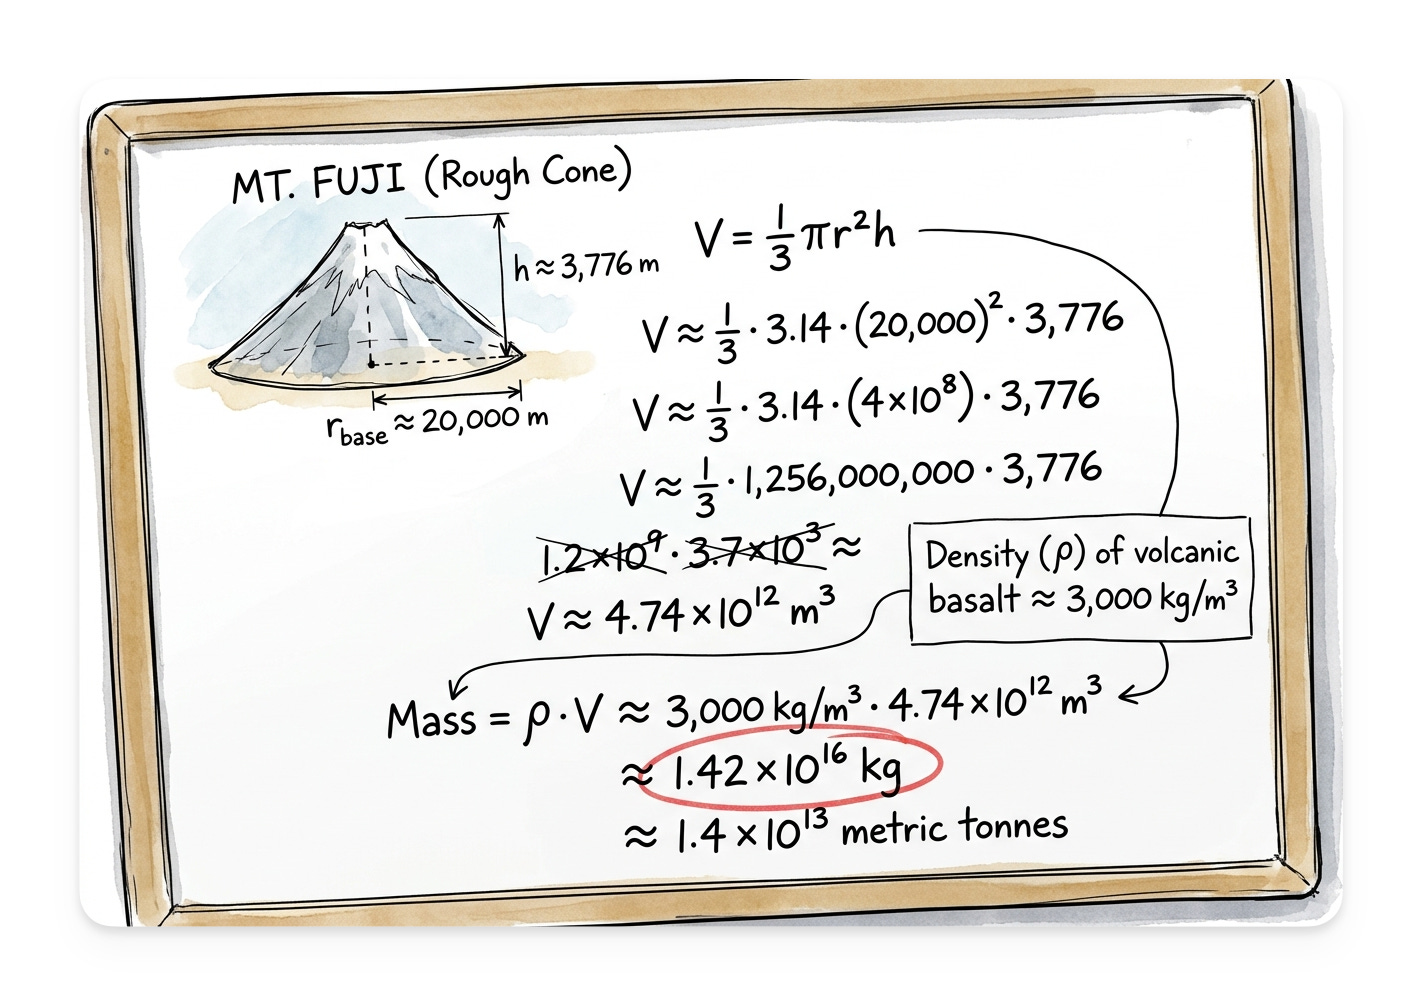 MT. FUJI (Rough Cone)
h ≈ 3,776 m
r_base ≈ 20,000 m
V = 1/3 πr²h
V ≈ 1/3 · 3.14 · (20,000)² · 3,776
V ≈ 1/3 · 3.14 · (4×10⁸) · 3,776
V ≈ 1/3 · 1,256,000,000 · 3,776
1.2×10⁹ · 3.7×10³ ≈
V ≈ 4.74×10¹² m³
Density (ρ) of volcanic
basalt ≈ 3,000 kg/m³
Mass = ρ · V ≈ 3,000 kg/m³ · 4.74×10¹² m³
≈ 1.42×10¹⁶ kg
≈ 1.4×10¹³ metric tonnes